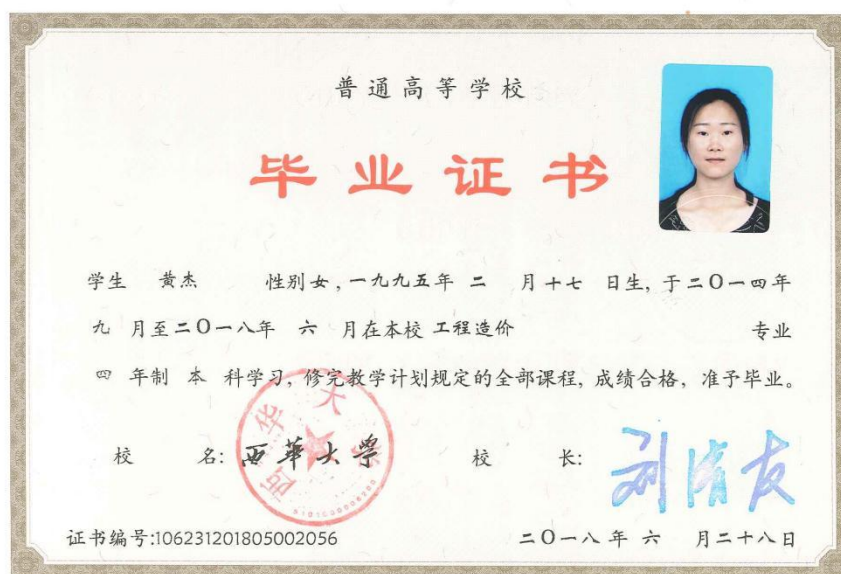 普通高等学校
毕业证书
学生 黄杰 性别女，一九九五年 二 月十七 日生，于二〇一四年
九 月至二〇一八年 六 月在本校 工程造价 专业
四 年制 本 科学习，修完教学计划规定的全部课程，成绩合格，准予毕业。
校 名：西华大学 校 长：刘清友
西华大学
证书编号:106231201805002056 二〇一八年 六 月二十八日